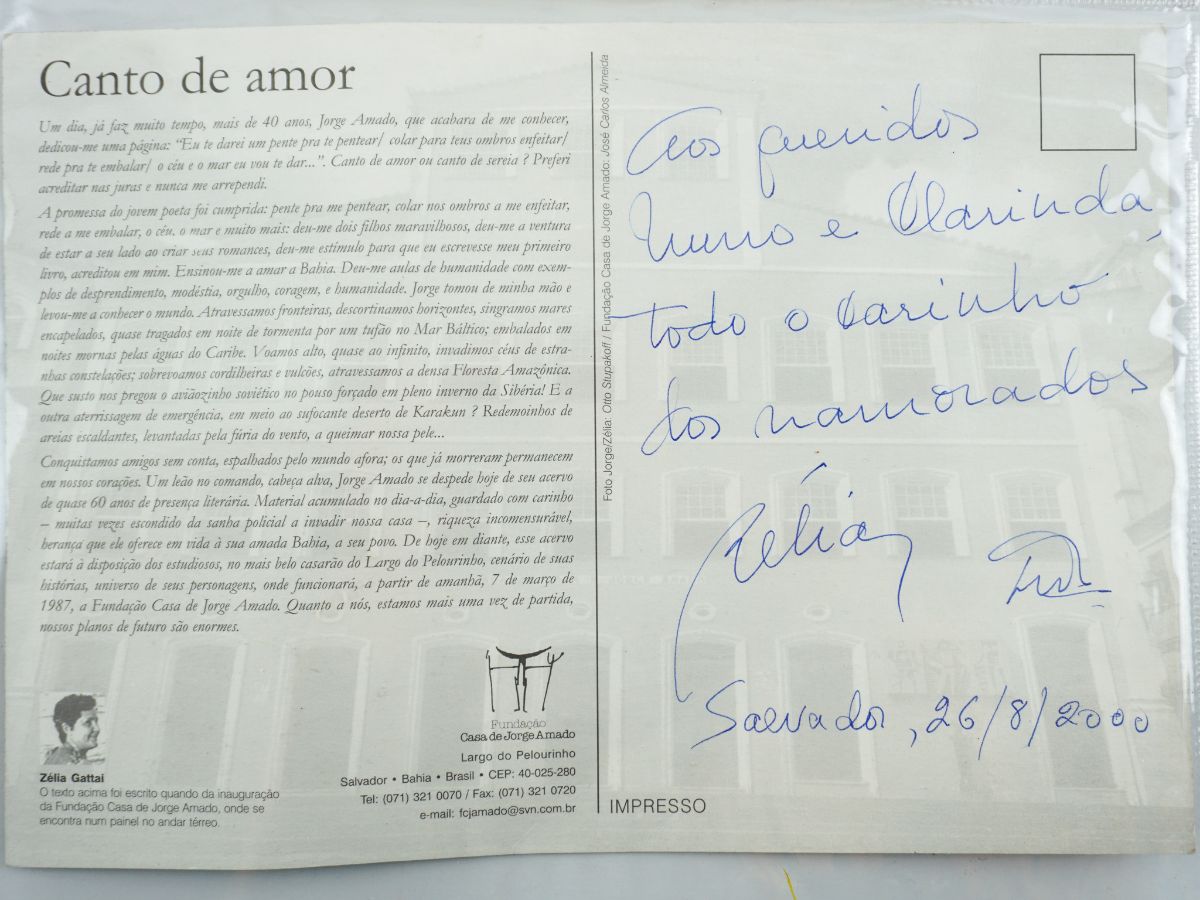 Canto de amor
Um dia, já faz muito tempo, mais de 40 anos, Jorge Amado, que acabara de me conhecer,
dedicou-me uma página: “Eu te darei um pente pra te pentear/ colar para teus ombros enfeitar/
rede pra te embalar/ o céu e o mar eu vou te dar...”. Canto de amor ou canto de sereia ? Preferi
acreditar nas juras e nunca me arrependi.
A promessa do jovem poeta foi cumprida: pente pra me pentear, colar nos ombros a me enfeitar,
rede a me embalar, o céu, o mar e muito mais: deu-me dois filhos maravilhosos, deu-me a ventura
de estar a seu lado ao criar seus romances, deu-me estímulo para que eu escrevesse meu primeiro
livro, acreditou em mim. Ensinou-me a amar a Bahia. Deu-me aulas de humanidade com exem-
plos de desprendimento, modéstia, orgulho, coragem, e humanidade. Jorge tomou de minha mão e
levou-me a conhecer o mundo. Atravessamos fronteiras, descortinamos horizontes, singramos mares
encapelados, quase tragados em noite de tormenta por um tufão no Mar Báltico; embalados em
noites mornas pelas águas do Caribe. Voamos alto, quase ao infinito, invadimos céus de estra-
nhas constelações; sobrevoamos cordilheiras e vulcões, atravessamos a densa Floresta Amazônica.
Que susto nos pregou o aviãozinho soviético no pouso forçado em pleno inverno da Sibéria! E a
outra aterrissagem de emergência, em meio ao sufocante deserto de Karakun ? Redemoinhos de
areias escaldantes, levantadas pela fúria do vento, a queimar nossa pele...
Conquistamos amigos sem conta, espalhados pelo mundo afora; os que já morreram permanecem
em nossos corações. Um leão no comando, cabeça alva, Jorge Amado se despede hoje de seu acervo
de quase 60 anos de presença literária. Material acumulado no dia-a-dia, guardado com carinho
– muitas vezes escondido da sanha policial a invadir nossa casa –, riqueza incomensurável,
herança que ele oferece em vida à sua amada Bahia, a seu povo. De hoje em diante, esse acervo
estará à disposição dos estudiosos, no mais belo casarão do Largo do Pelourinho, cenário de suas
histórias, universo de seus personagens, onde funcionará, a partir de amanhã, 7 de março de
1987, a Fundação Casa de Jorge Amado. Quanto a nós, estamos mais uma vez de partida,
nossos planos de futuro são enormes.
Zélia Gattai
O texto acima foi escrito quando da inauguração
da Fundação Casa de Jorge Amado, onde se
encontra num painel no andar térreo.
Fundação
Casa de Jorge Amado
Largo do Pelourinho
Salvador • Bahia • Brasil • CEP: 40-025-280
Tel: (071) 321 0070 / Fax: (071) 321 0720
e-mail: fcjamado@svn.com.br
Foto Jorge/Zélia: Otto Stupakoff / Fundação Casa de Jorge Amado: José Carlos Almeida
IMPRESSO
Aos queridos
Nuno e Clarinda,
todo o carinho
dos namorados
Zélia
Salvador, 26/8/2000